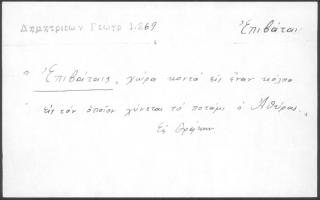 Δημητριεων Γεωγρ 1.269
Ἐπιβάται
"Ἐπιβάταις, χώρα κοντά εἰς ἕναν κόλπο
εἰς τόν ὁποῖον χύνεται τό ποτάμι ὁ Ἀθύρας.
Εἰς Θράκην